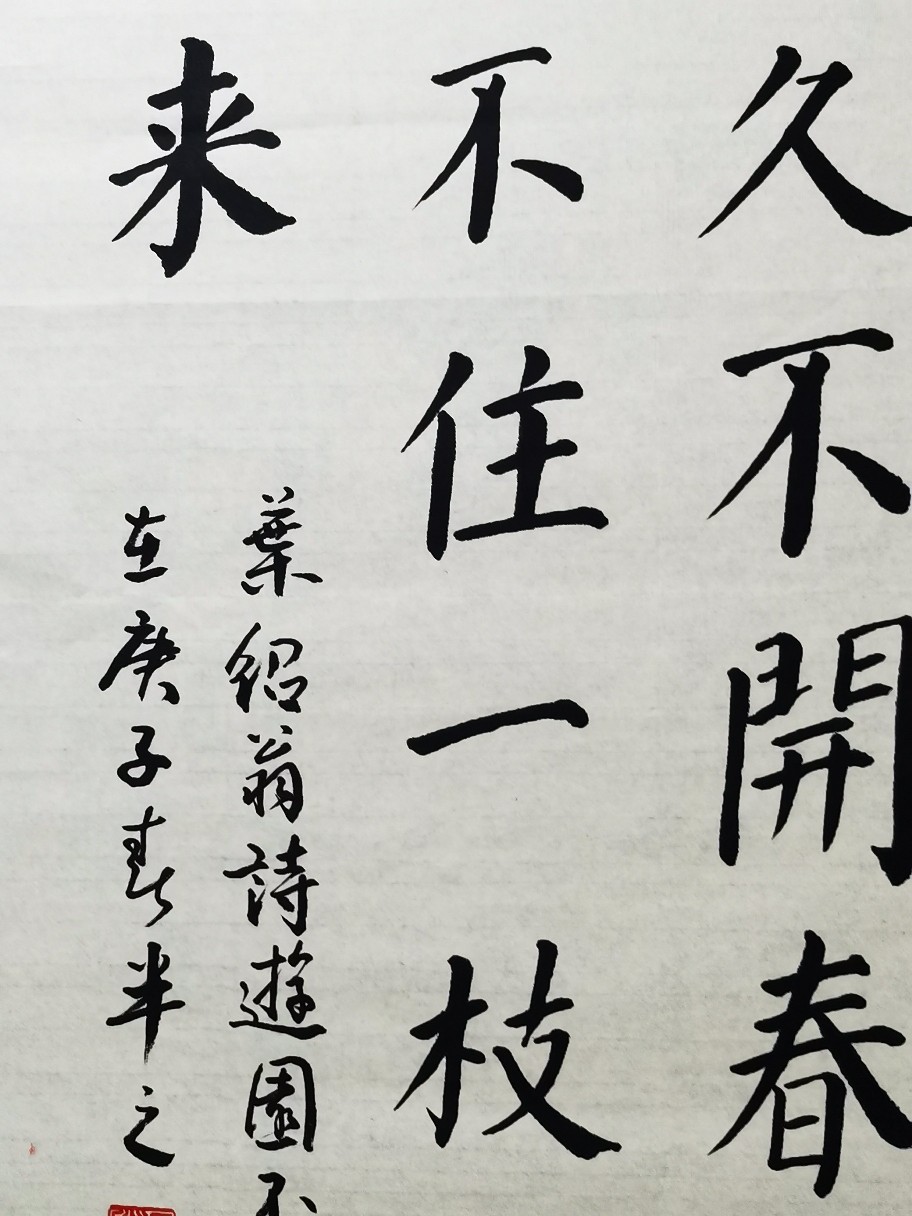 久不開春
不住一枝
来
葉紹翁詩遊園不
在庚子春半之